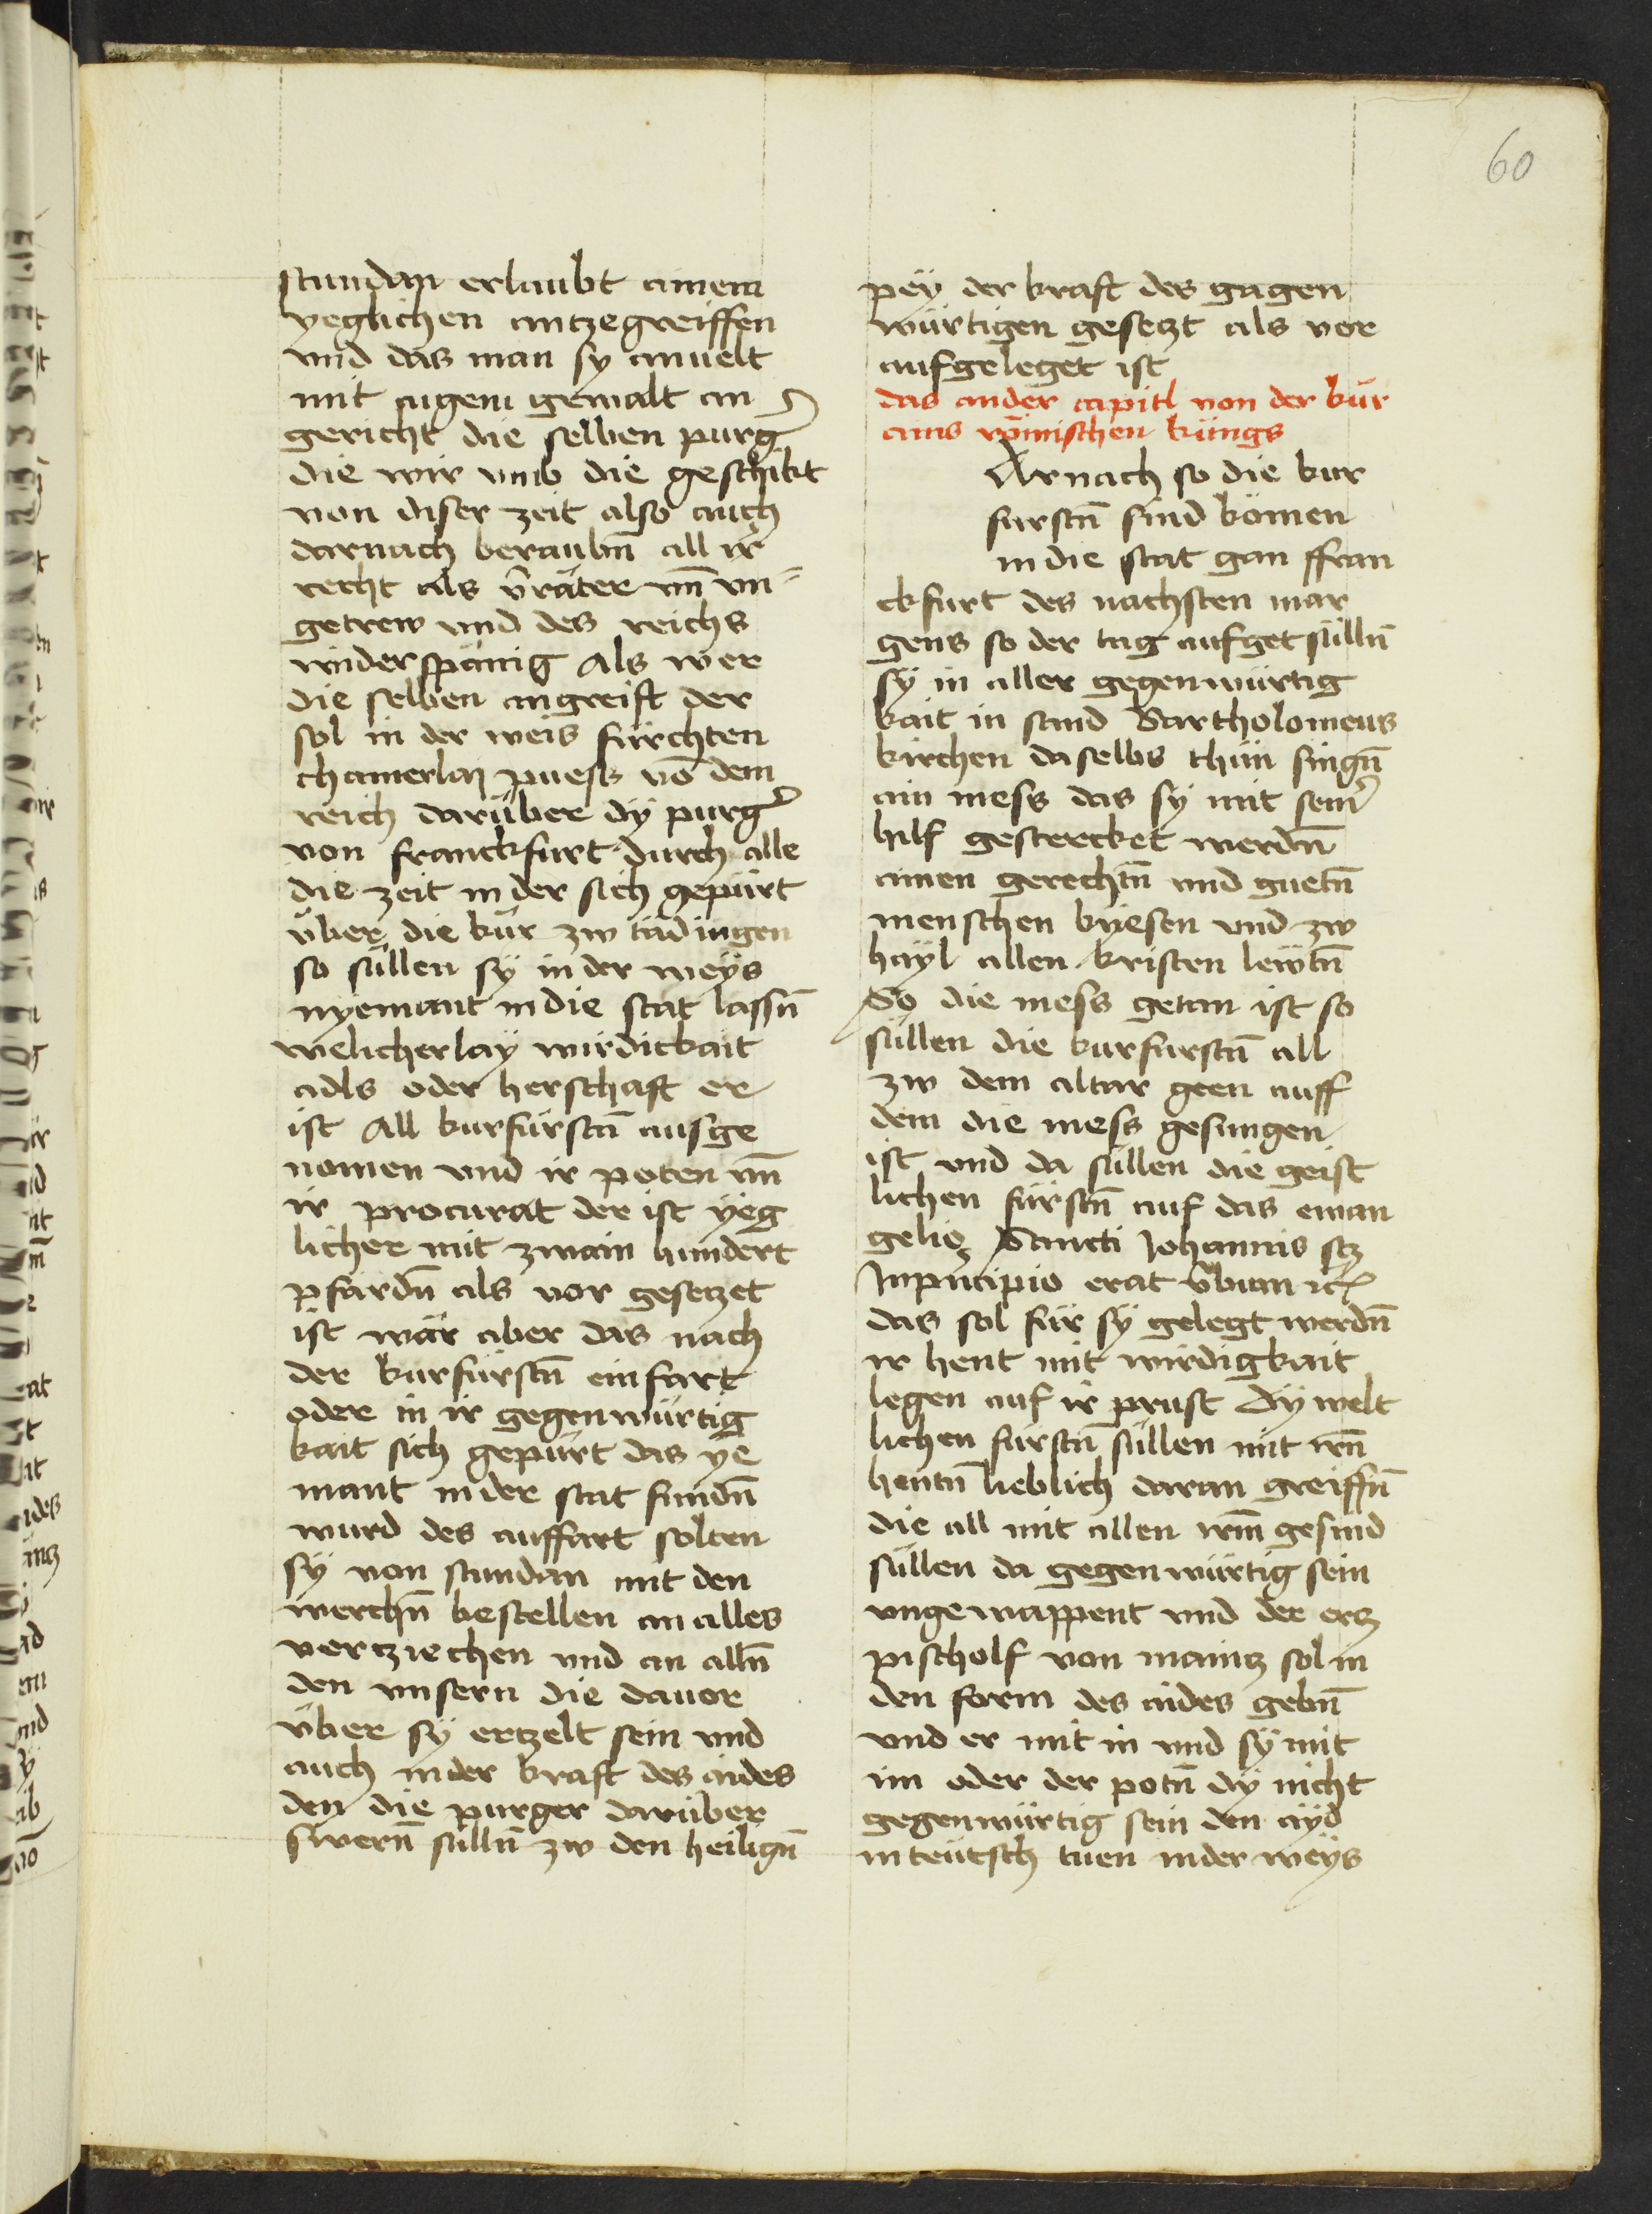 60
stundan erlaubt ainem
yeglichen antzegreiffen
vnd das man sy anuelt
mit aigem gewalt an
gericht die selben purg̕
die wir vmb die geschikt
von diser zeit also auch
darnach beraubn̄ all ir
recht als v̄räter vn̄ vn-
getrew vnd des reichs
widerspänig Als wer
die selben angreift der
sol in der weis fürchten
chainerlay puess vō dem
reich darüber dÿ purg̕
von franckfurt durch alle
die zeit in der sich gepürt
über die kür zw tädingen
so süllen sÿ in der weÿs
nyemant in die stat lassn̄
welicherlaÿ wirdickait
adls oder herschaft er
ist All kurfürstn̄ ausge
nomen vnd ir poten vn̄
ir procurat der ist ÿeg
licher mit zwain hundert
pfärdn̄ als vor gesetzet
ist wär aber das nach
der kurfürstn̄ einfart
oder in ir gegenwürtig
kait sich gepürt das ye
mant in der stat fundn̄
wurd des auffart solten
sÿ von stundan mit den
werchn̄ bestellen an alles
vertziechen vnd an alln̄
den vnsern die dauor
über sÿ ertzelt sein vnd
auch in der kraft des aides
den die purger darüber
swern̄ sülln̄ zw den heilign̄
peÿ der kraft des gagen
würtigen gesetzt als vor
aufgeleget ist
das ander capitl von der kür
ains römischen künigs
Arnach so die kur
furstn̄ sind kömen
in die stat gan ffran
ckfurt des nachsten mar
gens so der tag aufget sülln̄
sÿ in aller gegenwürtig
kait in sand Bartholomeus
kirchen daselbs thün singn̄
ain mess das sÿ mit sein̕
hilf gesterckt werdn̄
ainen gerechtn̄ vnd guetn̄
menschen kÿesen vnd zw
haÿl allen kristen lewtn̄
So die mess getan ist so
süllen die kurfurstn̄ all
zw dem altar geen auff
dem die mess gesungen
ist vnd da süllen die geist
lichen fürstn̄ auf das ewan
gelio Sancti Johannis scz
Inpricipio erat v̄bum ꝛc
das sol für sÿ gelegt werdn̄
ir hent mit wirdigkait
legen auf ir prust dÿ welt
lichen fürstn̄ süllen mit irn̄
hentn̄ lieblich daran greiffn̄
die all mit allen irm̄ gesind
süllen da gegenwürtig sein
vngewappent vnd der ertz
pischolf von maintz sol in
den form des aides gebn̄
vnd er mit in vnd sÿ mit
im oder der potn̄ dÿ nicht
gegenwürtig sein den aÿd
in teütsch tuen in der weÿs